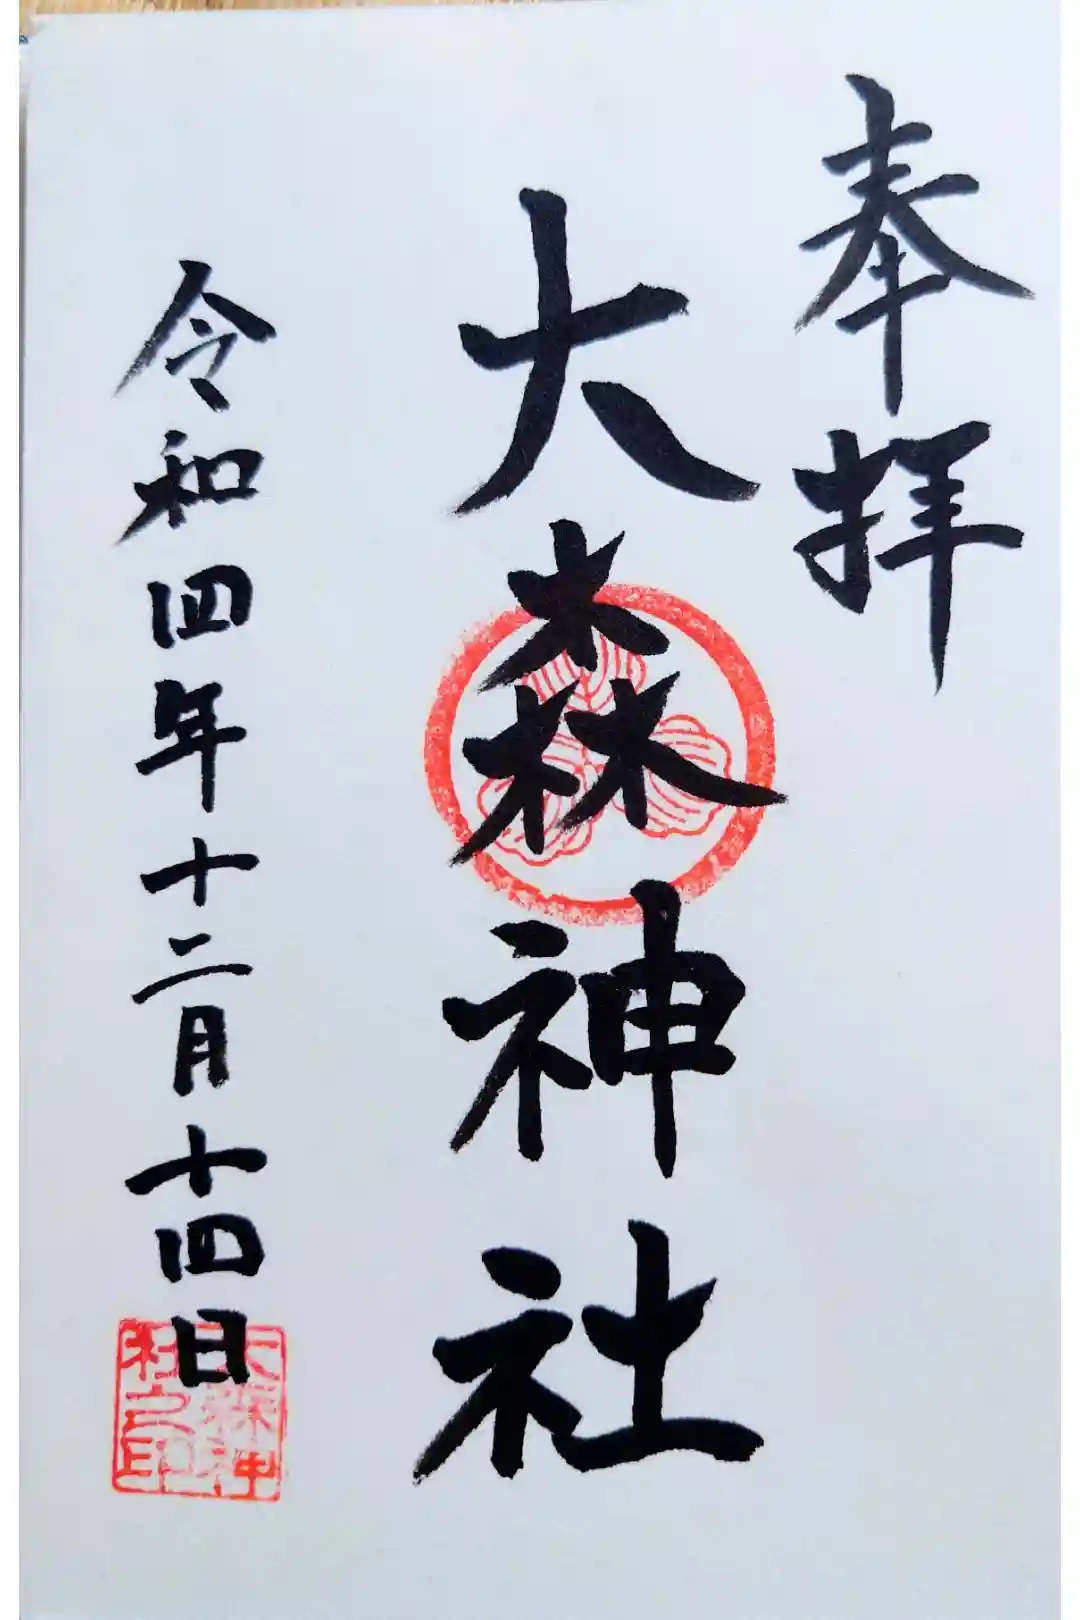 奉拝
大森神社
令和四年十二月十四日
大森神
社之印